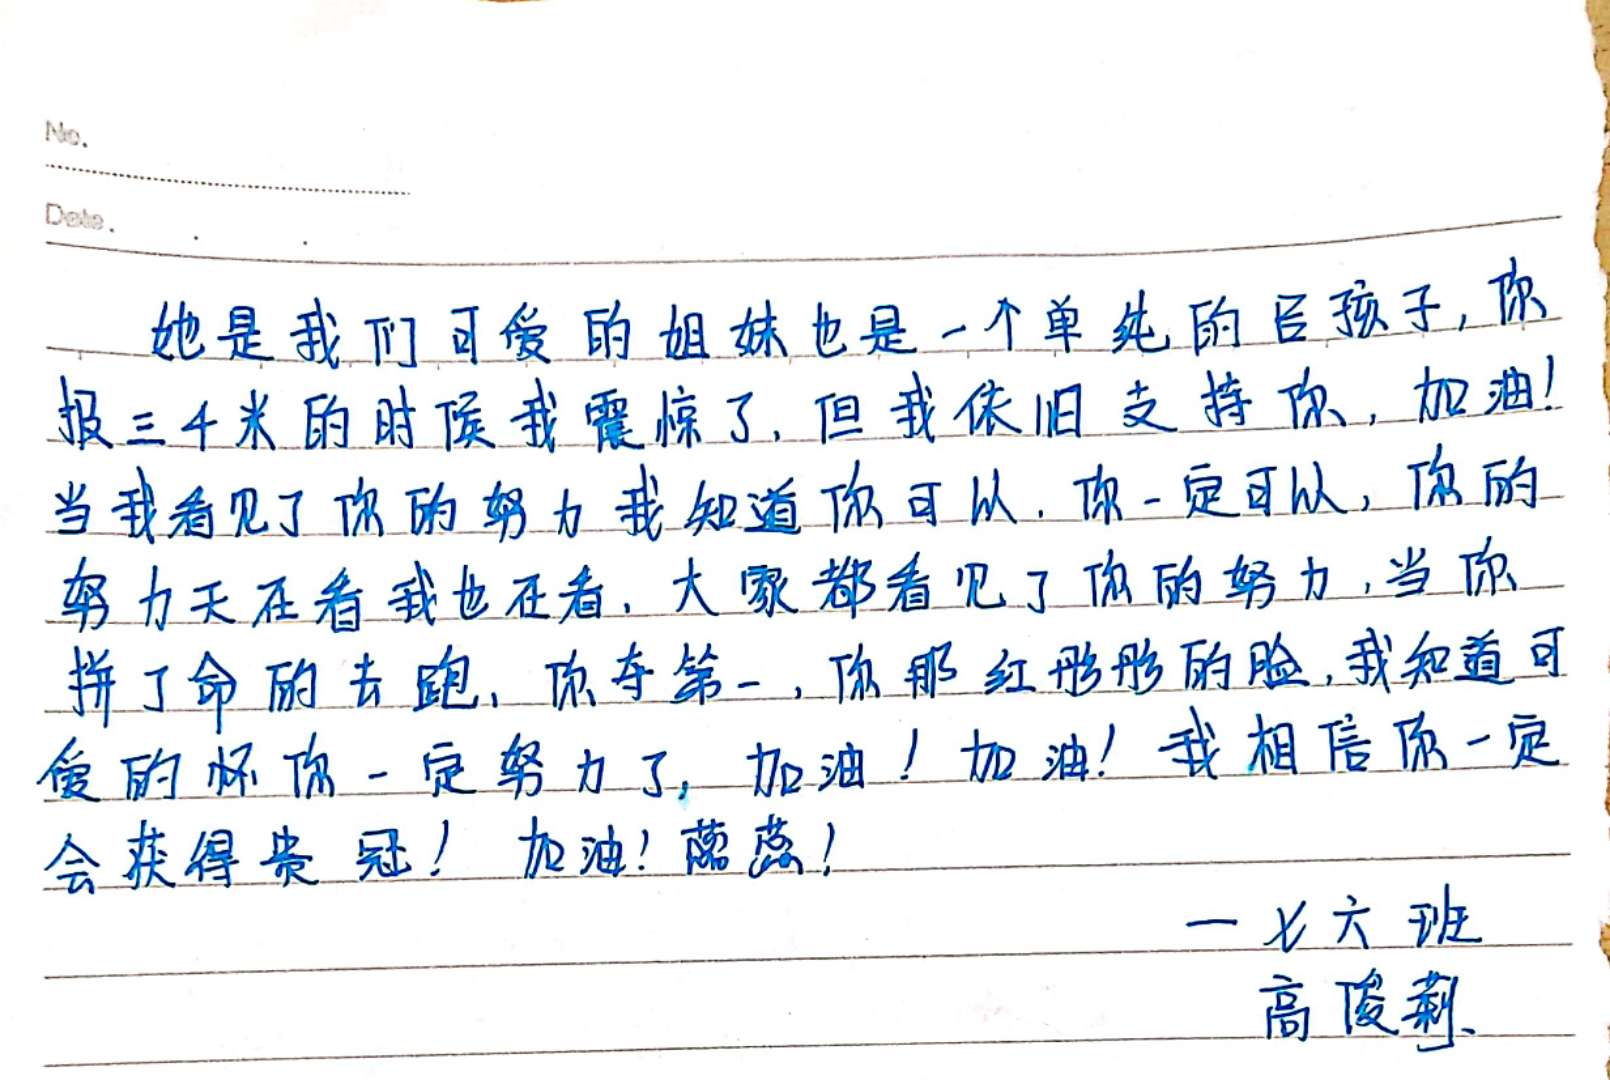 No.
Date.
她是我们可爱的姐妹也是一个单纯的孩子,你
报三千米的时候我震惊了,但我依旧支持你,加油!
当我看见了你的努力我知道你可以.你一定可以,你的
努力天在看我也在看,大家都看见了你的努力,当你
拼了命的去跑、你夺第一,你那红彤彤的脸,我知道可
爱的你一定努力了,加油!加油!我相信你一定
会获得贵冠!加油!蕊!
一七六班
高俊莉